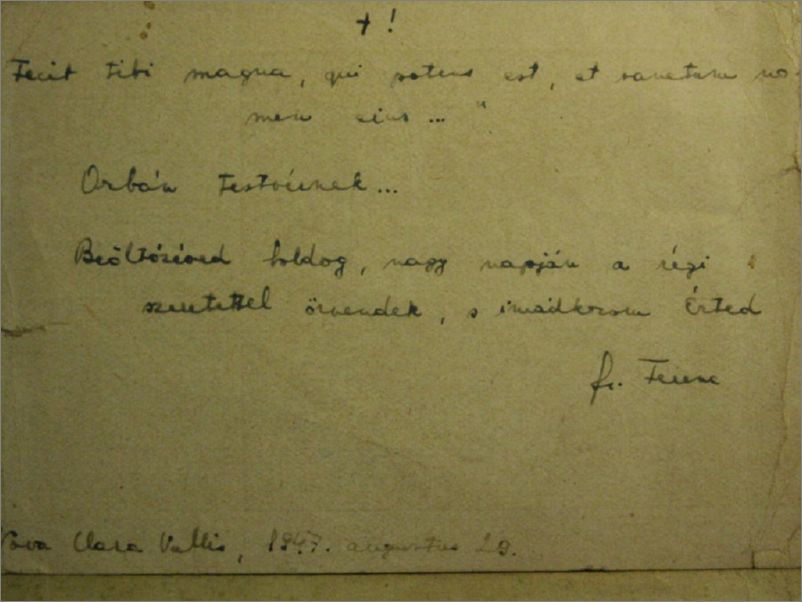 + !
Fecit tibi magna, qui potens est, et sanctum no-
men eius... "
Orbán testvérnek...
Beöltözésed boldog, nagy napján a régi
szeretettel örvendek, s imádkozom Érted
fr. Ferenc
Nova Clara Vallis, 1947. augustus 29.